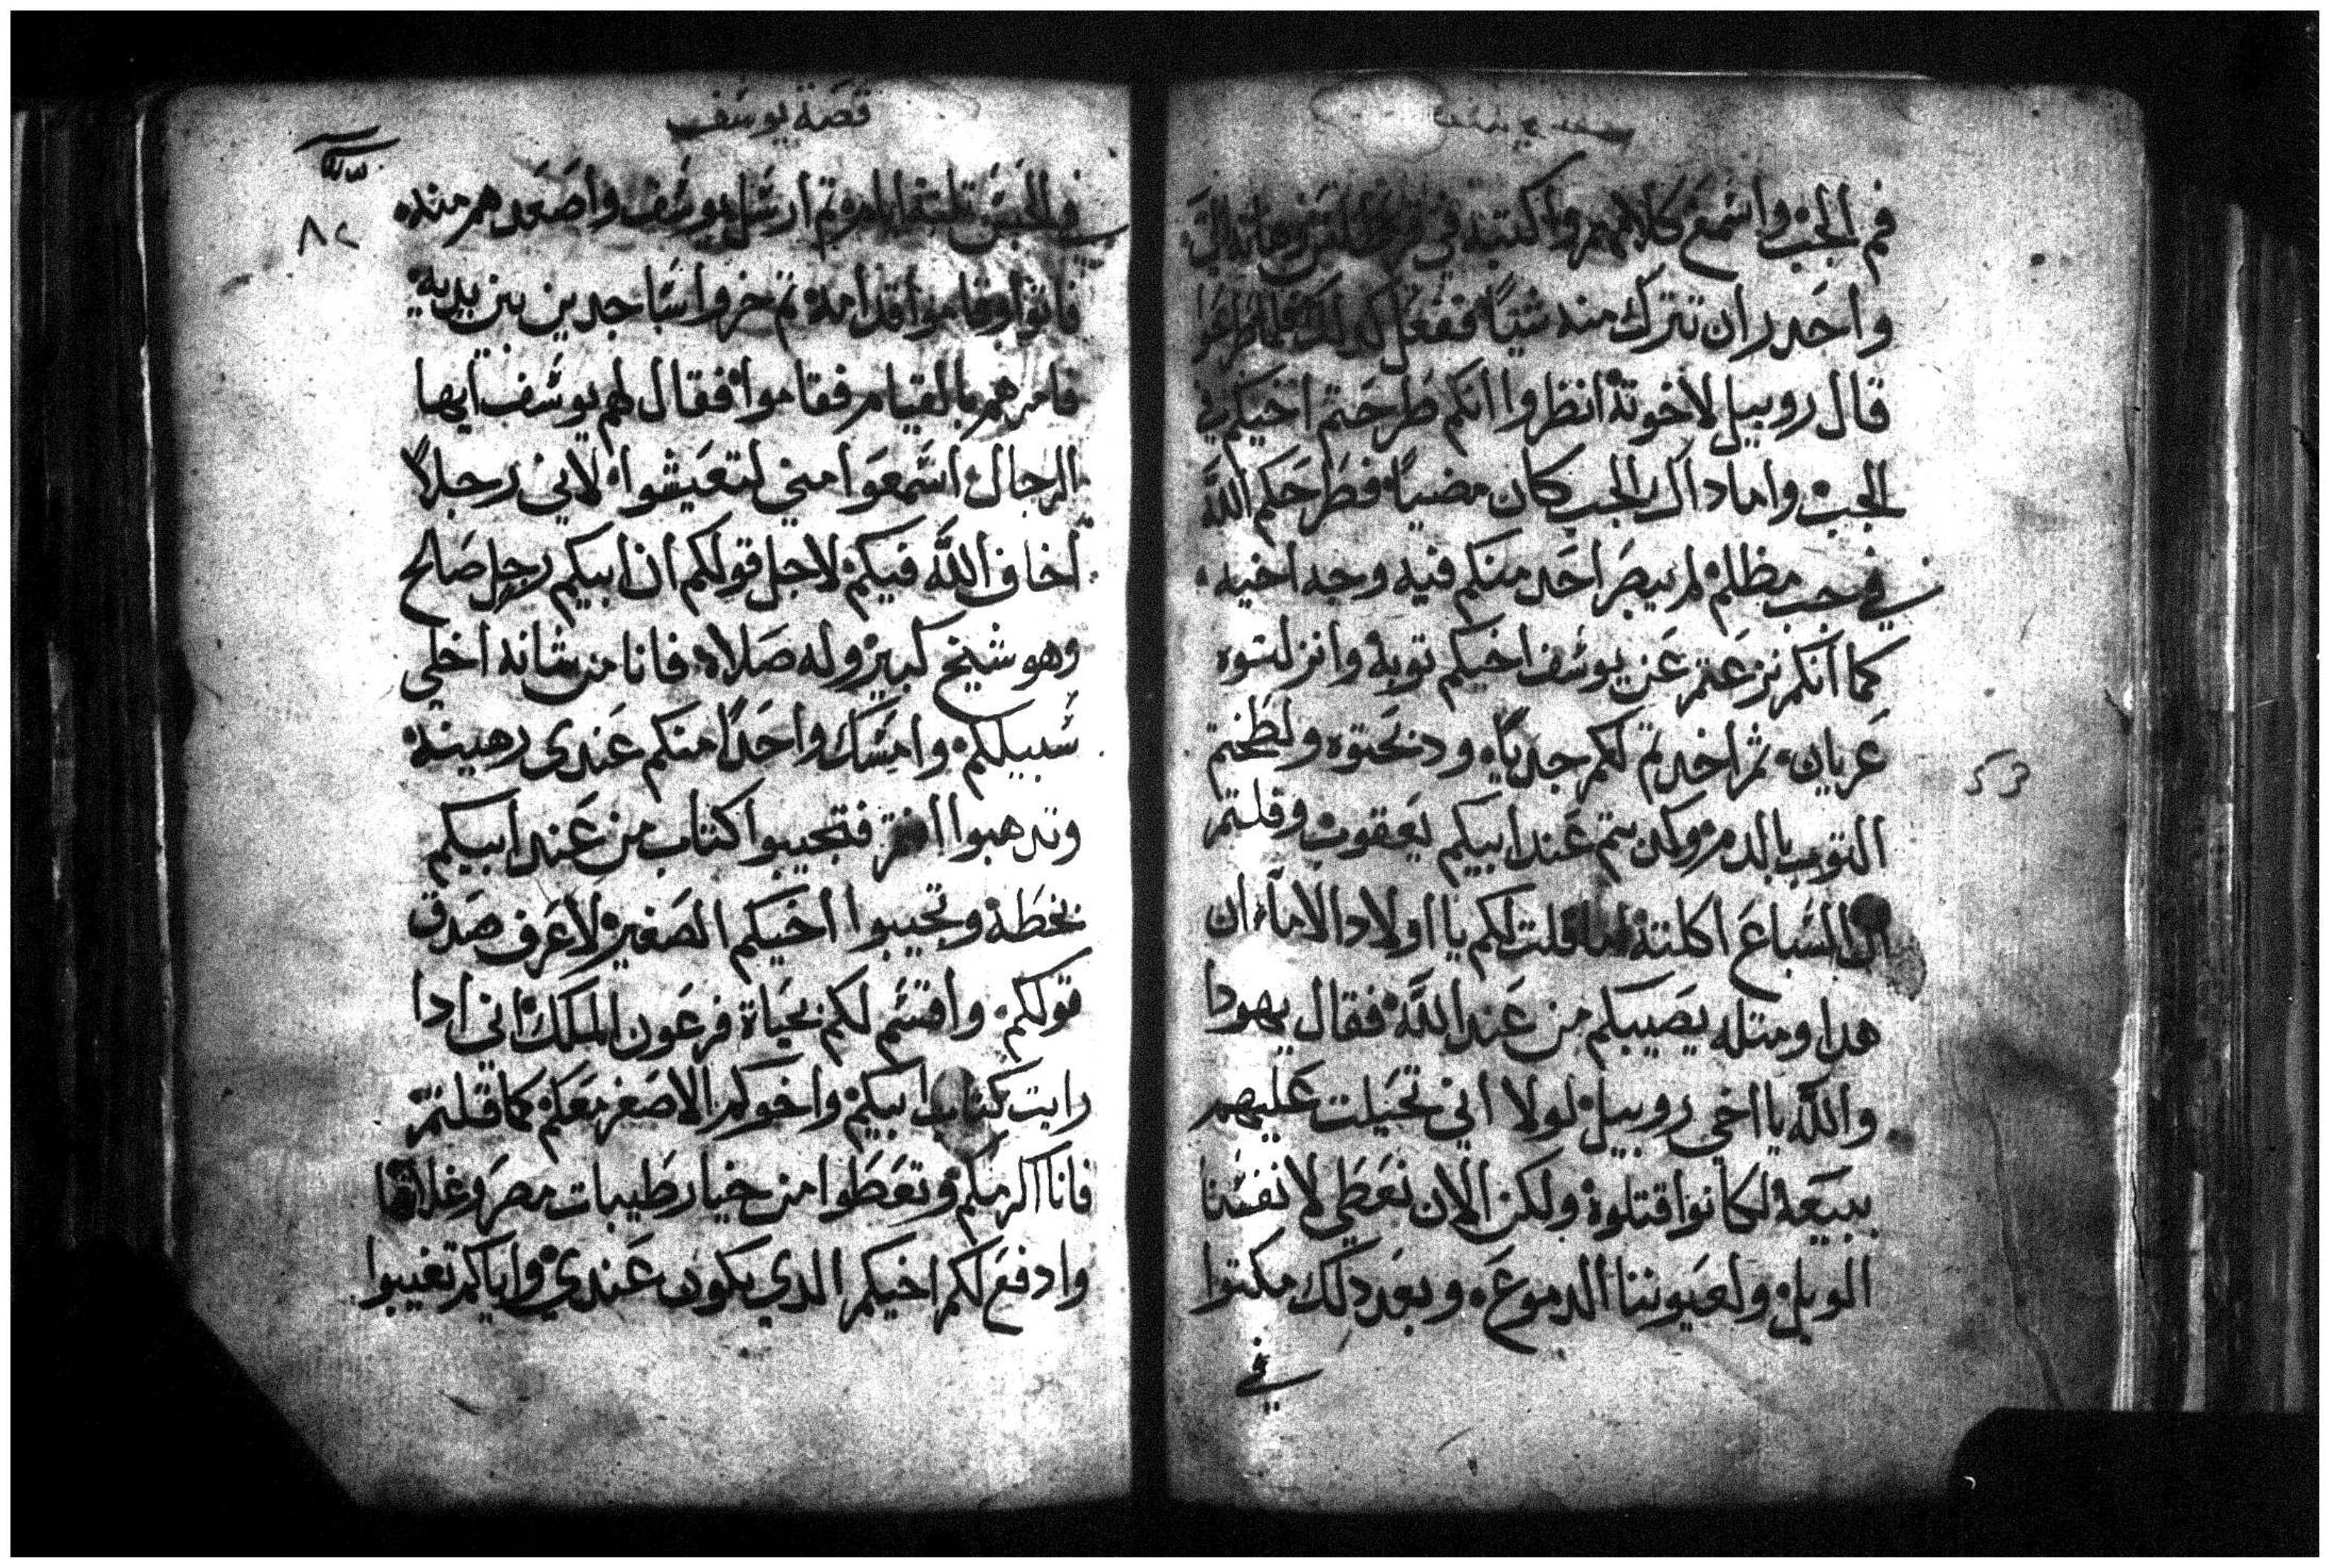 فم الجب واسمع كلامهم واكتبه في
واحدر ان تترك منه شياً ففعل كدلك فلما
قال روبيل لاخوته انظروا انكم طرحتم اخيكم في
الجب واما داك الجب كان مضياً فطرحكم اللّه
في جب مظلم لم يبصر احد منكم فيه وجه اخيه
كما انكم نزعتم عن يوسف اخيكم توبه وانزلتوه
عريان ثم اخدتم لكم جدياً ودبحتوه ولطختم
التوب بالدم وكدبتم عند ابيكم يعقوب وقلتم
ان السباع اكلته اما قلت لكم يا اولاد الاماء ان
هدا ومتله يصيبكم من عند اللّه فقال يهودا
واللّه يا اخي روبيل لولا اني تحيلت عليهم
ببيعه لكانوا قتلوه ولكن الان نعطي لانفسنا
الويل ولعيوننا الدموع وبعد دلك مكتوا
في
قصة يوسف
٨٢
في الحبس تلتة ايام تم ارسل يوسف واصعدهم منه
فاتوا وقاموا قدامه تم خروا ساجدين بين يديه
فامرهم بالقيام فقاموا فقال لهم يوسف ايها
الرجال اسمعوا مني لتعيشوا لاني رجلاً
اخاف اللّه فيكم لاجل قولكم ان ابيكم رجل صالح
وهو شيخ كبير وله صلاه فانا من شانه اخلي
سبيلكم وامسك واحداً منكم عندي رهينة
وتدهبوا انتم فتجيبوا كتاب من عند ابيكم
بخطة وتجيبوا اخيكم الصغير لاعرف صدق
قولكم واقسم لكم بحياة فرعون الملك اني ادا
رايت كتاب ابيكم واخوكم الاصغر معكم كما قلتم
فانا اكرمكم وتعطوا من خيار طيبات مصر وغلاتها
وادفع لكم اخيكم الدي يكون عندي واياكم تغيبوا